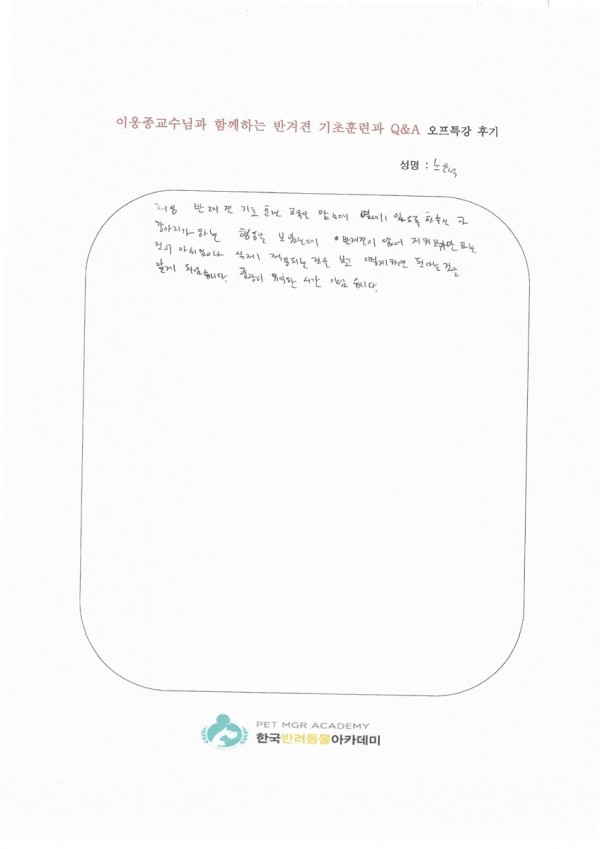 이웅종교수님과 함께하는 반겨견 기초훈련과 Q&A 오프특강 후기
성명 :
처음 반려견 기초 훈련 교육을 받는데
강아지가 하는 행동을 보았는데 반려견이 앞서
것이 아쉬웠으나 실제 적용되는 것을 보고 어떻게 하면 된다는 것을
알게 되었습니다. 굉장히 유익한 시간 이었습니다.
PET MGR ACADEMY
한국반려동물아카데미